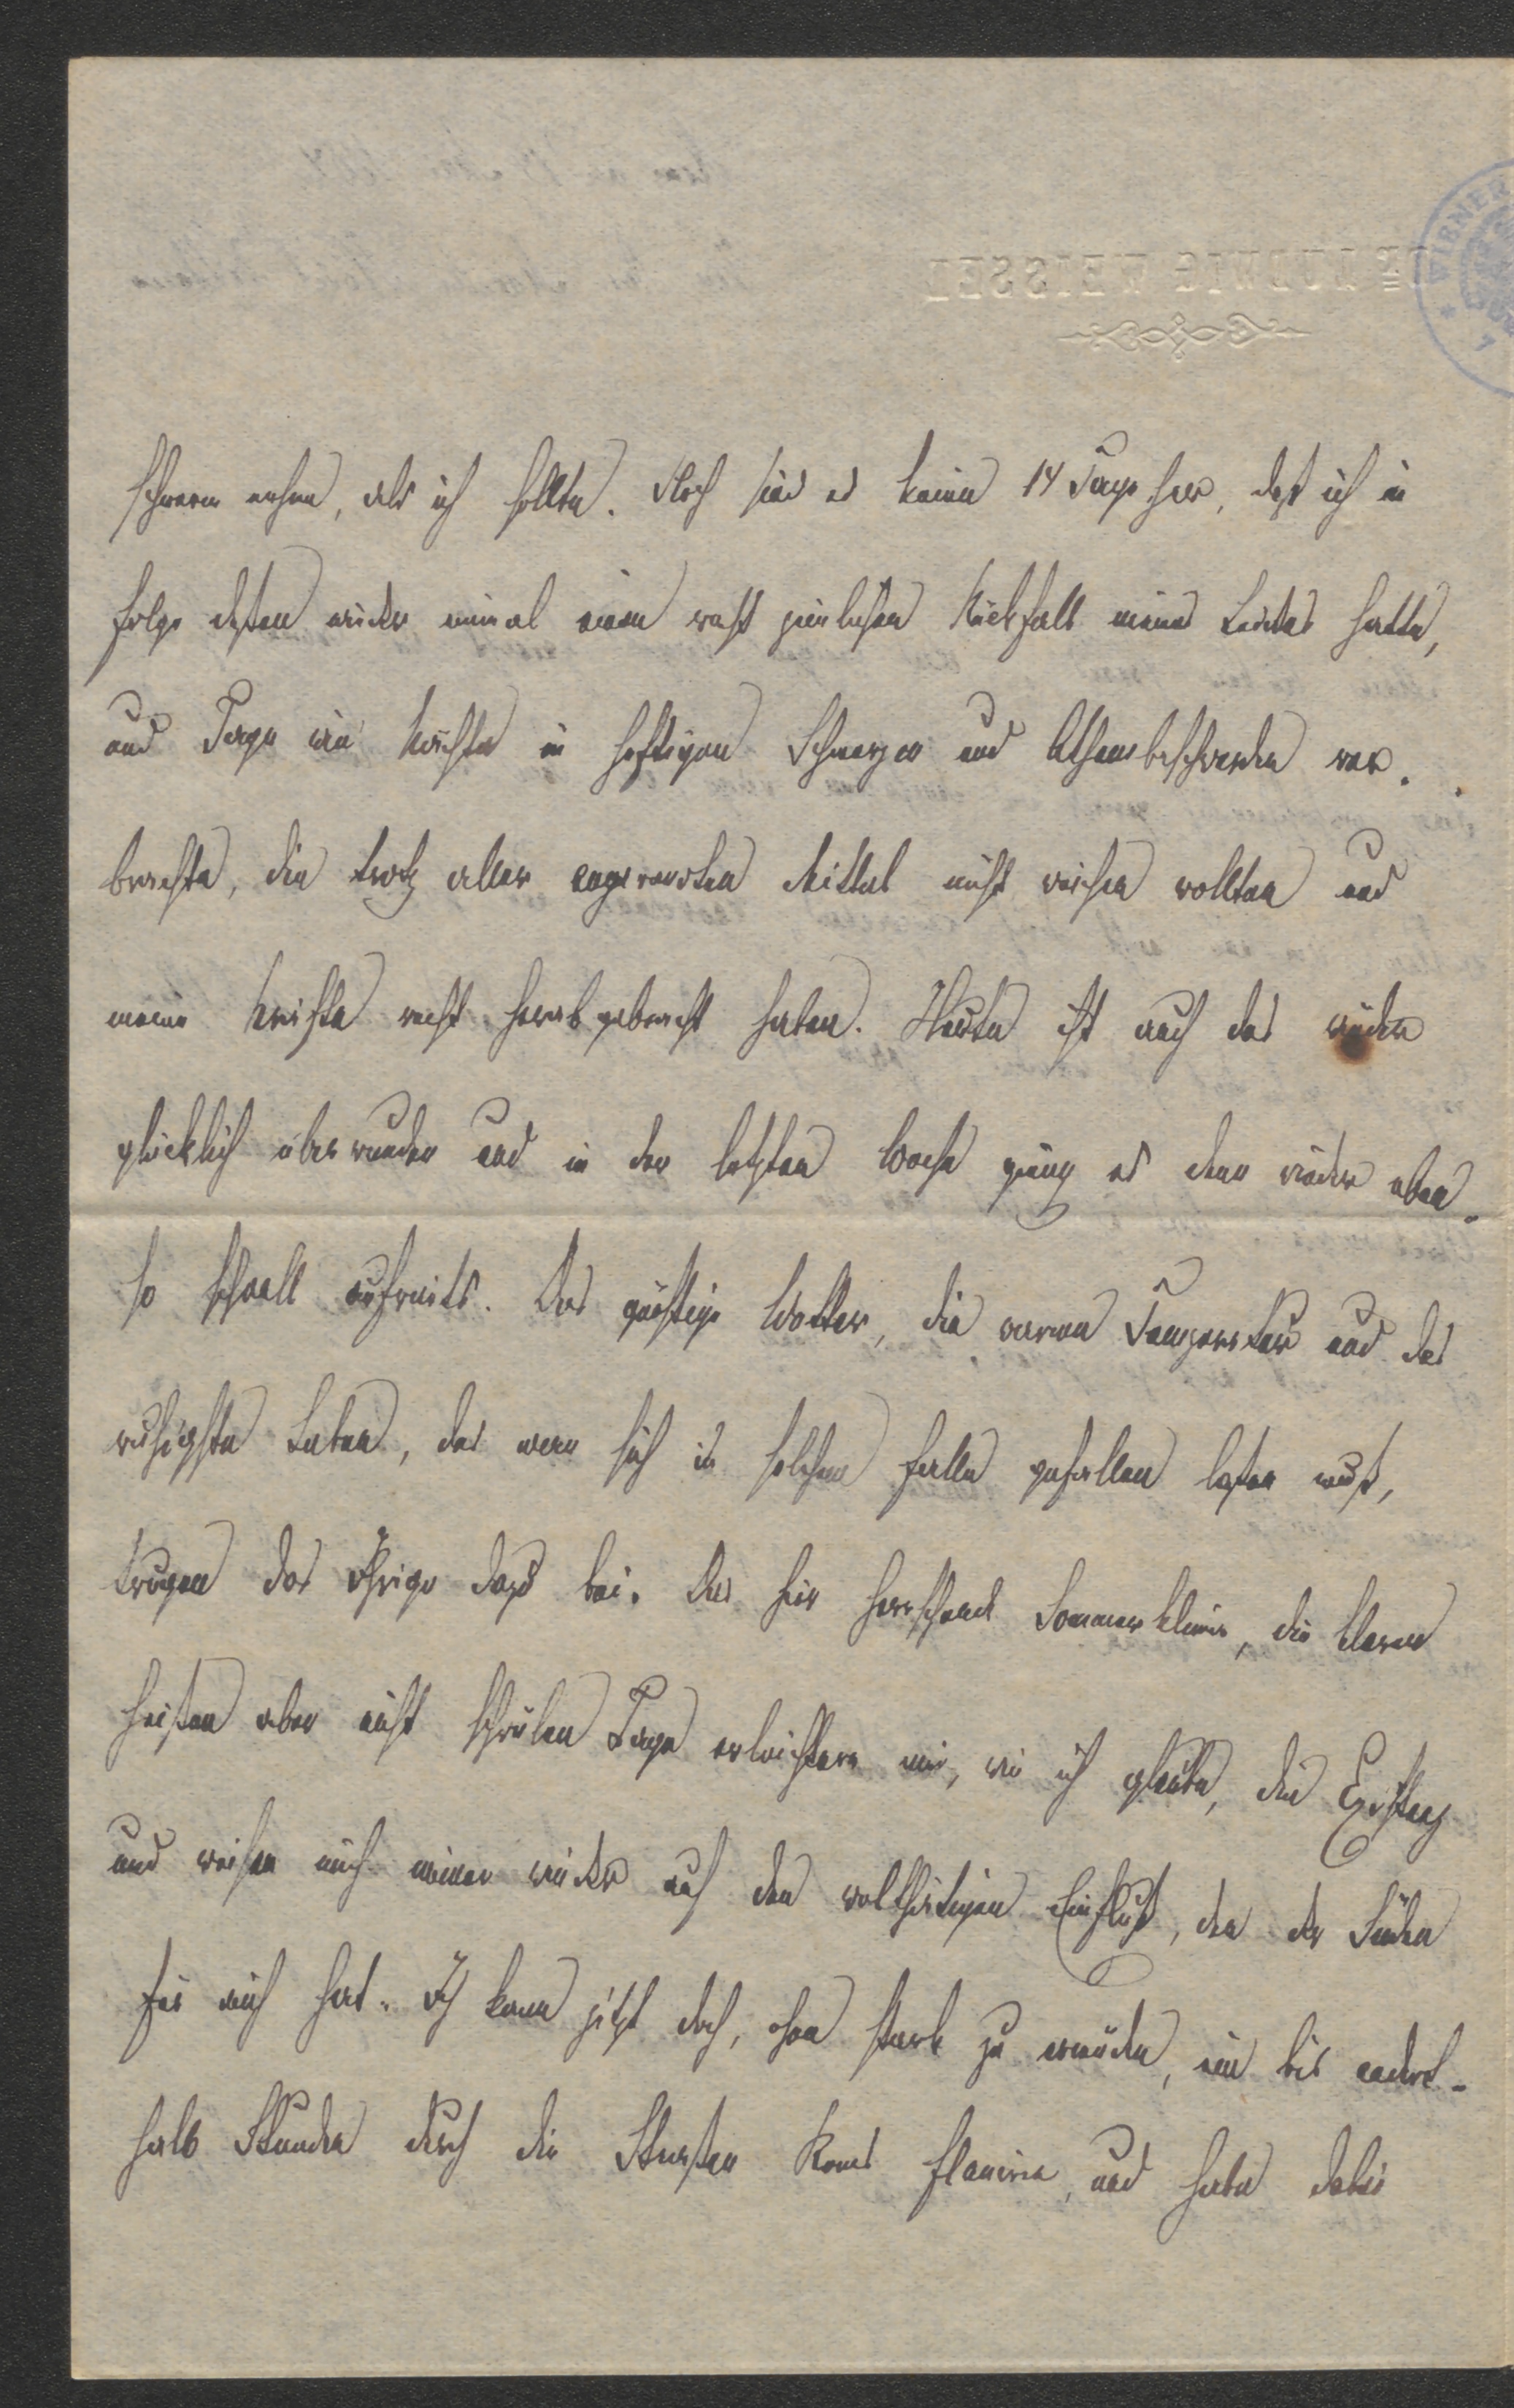 Dr. LUDWIG WEISSEL
* WIENER
schwerer nehme, als ich sollte. Noch sind es keine 14 Tage her, daß ich in
Folge deßen wieder einmal einen recht peinlichen Rückfall meines Leidens hatte,
und Tage wie Nächte in heftigen Schmerzen und Athembeschwerden ver-
brachte, die trotz aller angewandten Mittel nicht weichen wollten und
meine Kräfte recht herabgebracht haben. Heute ist auch das wieder
glücklich überwunden und in der letzten Woche ging es dann wieder eben-
so schnell aufwärts. Das günstige Wetter, die warme Temperatur und das
ruhigste Leben, das man sich in solchem Falle gefallen laßen muß,
trugen das Ihrige dazu bei. Das hier herrschende Sommerklima, die klaren
heißen aber nicht schwülen Tage erleichtern mir, wie ich glaube, die Existenz
und weisen mich immer wieder auf den wolthätigen Einfluß, den der Süden
für mich hat. Ich kann jetzt doch, ohne stark zu ermüden, ein bis andert-
halb Stunden durch die Straßen Roms flaniren, und habe dabei